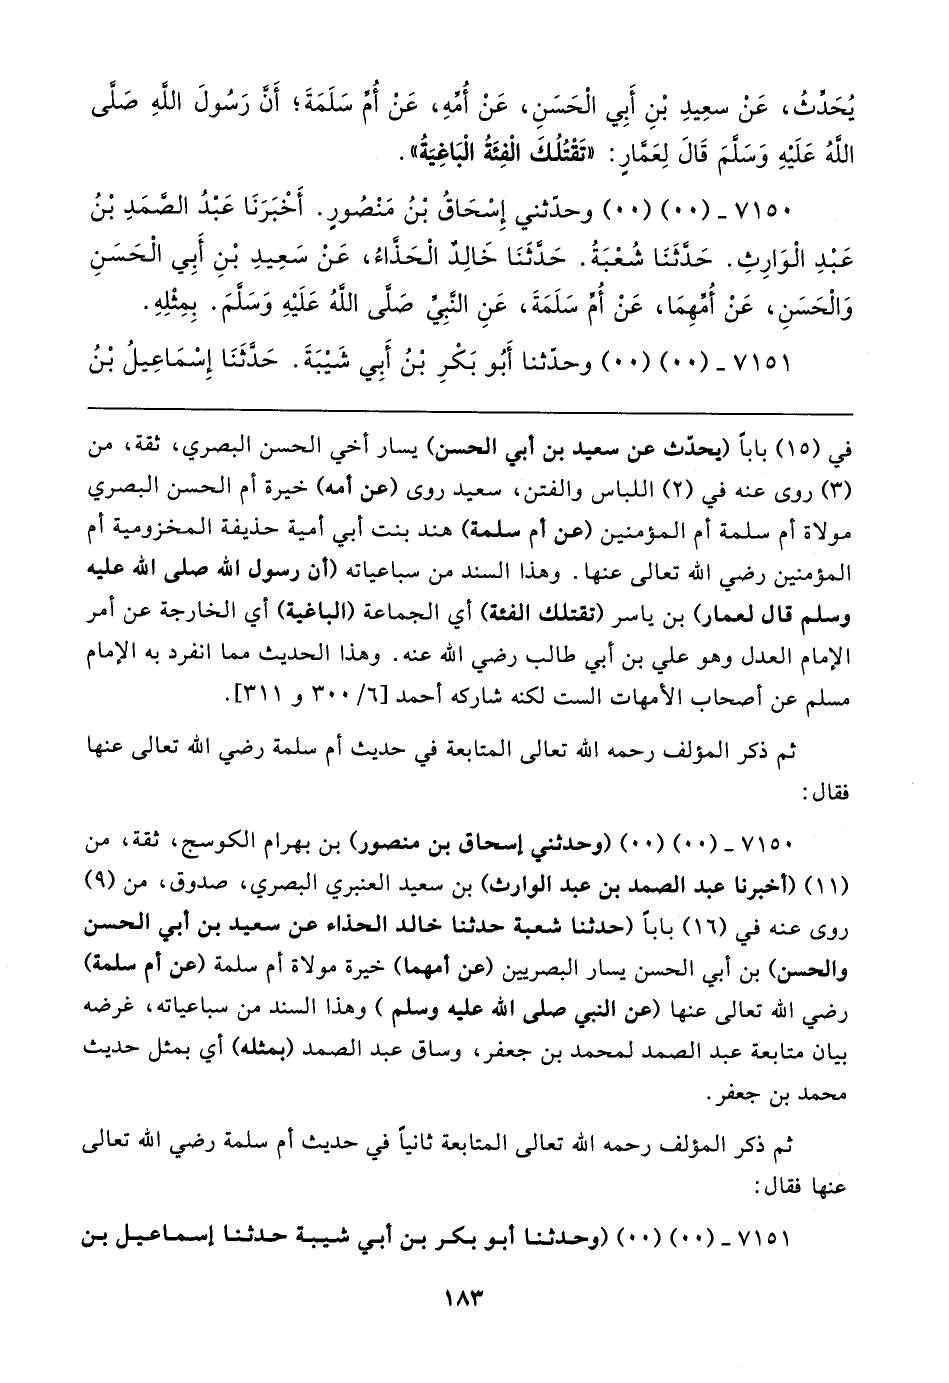 يُحَدِّثُ، عَنْ سعِيدِ بْنِ أَبِي الْحَسَنِ، عَنْ أُمِّهِ، عَنْ أُمِّ سَلَمَةَ؛ أَنَّ رَسُولَ اللَّهِ صَلَّى
اللَّهُ عَلَيْهِ وَسَلَّمَ قَالَ لِعَمَّارٍ: «تَقْتُلُكَ الْفِئَةُ الْبَاغِيَةُ».
٧١٥٠ ـ (٠٠) (٠٠) وحدّثني إِسْحَاقُ بْنُ مَنْصُورٍ. أَخْبَرَنَا عَبْدُ الصَّمَدِ بْنُ
عَبْدِ الْوَارِثِ. حَدَّثَنَا شُعْبَةُ. حَدَّثَنَا خَالِدٌ الْحَذَّاءُ، عَنْ سَعِيدِ بْنِ أَبِي الْحَسَنِ
وَالْحَسَنِ، عَنْ أُمِّهِمَا، عَنْ أُمِّ سَلَمَةَ، عَنِ النَّبِيِّ صَلَّى اللَّهُ عَلَيْهِ وَسَلَّمَ. بِمِثْلِهِ.
٧١٥١ ـ (٠٠) (٠٠) وحدّثنا أَبُو بَكْرِ بْنُ أَبِي شَيْبَةَ. حَدَّثَنَا إِسْمَاعِيلُ بْنُ
في (١٥) باباً (يحدّث عن سعيد بن أبي الحسن) يسار أخي الحسن البصري، ثقة، من
(٣) روى عنه في (٢) اللباس والفتن، سعيد روى (عن أمه) خيرة أم الحسن البصري
مولاة أم سلمة أم المؤمنين (عن أم سلمة) هند بنت أبي أمية حذيفة المخزومية أم
المؤمنين رضي الله تعالى عنها. وهذا السند من سباعياته (أن رسول الله صلى الله عليه
وسلم قال لعمار) بن ياسر (تقتلك الفئة) أي الجماعة (الباغية) أي الخارجة عن أمر
الإمام العدل وهو علي بن أبي طالب رضي الله عنه. وهذا الحديث مما انفرد به الإمام
مسلم عن أصحاب الأمهات الست لكنه شاركه أحمد [٦/ ٣٠٠ و ٣١١].
ثم ذكر المؤلف رحمه الله تعالى المتابعة في حديث أم سلمة رضي الله تعالى عنها
فقال:
٧١٥٠ ـ (٠٠) (٠٠) (وحدثني إسحاق بن منصور) بن بهرام الكوسج، ثقة، من
(١١) (أخبرنا عبد الصمد بن عبد الوارث) بن سعيد العنبري البصري، صدوق، من (٩)
روى عنه في (١٦) باباً (حدثنا شعبة حدثنا خالد الحذاء عن سعيد بن أبي الحسن
والحسن) بن أبي الحسن يسار البصريين (عن أمهما) خيرة مولاة أم سلمة (عن أم سلمة)
رضي الله تعالى عنها (عن النبي صلى الله عليه وسلم ) وهذا السند من سباعياته، غرضه
بيان متابعة عبد الصمد لمحمد بن جعفر، وساق عبد الصمد (بمثله) أي بمثل حديث
محمد بن جعفر.
ثم ذكر المؤلف رحمه الله تعالى المتابعة ثانياً في حديث أم سلمة رضي الله تعالى
عنها فقال:
٧١٥١ ـ (٠٠) (٠٠) (وحدثنا أبو بكر بن أبي شيبة حدثنا إسماعيل بن
١٨٣